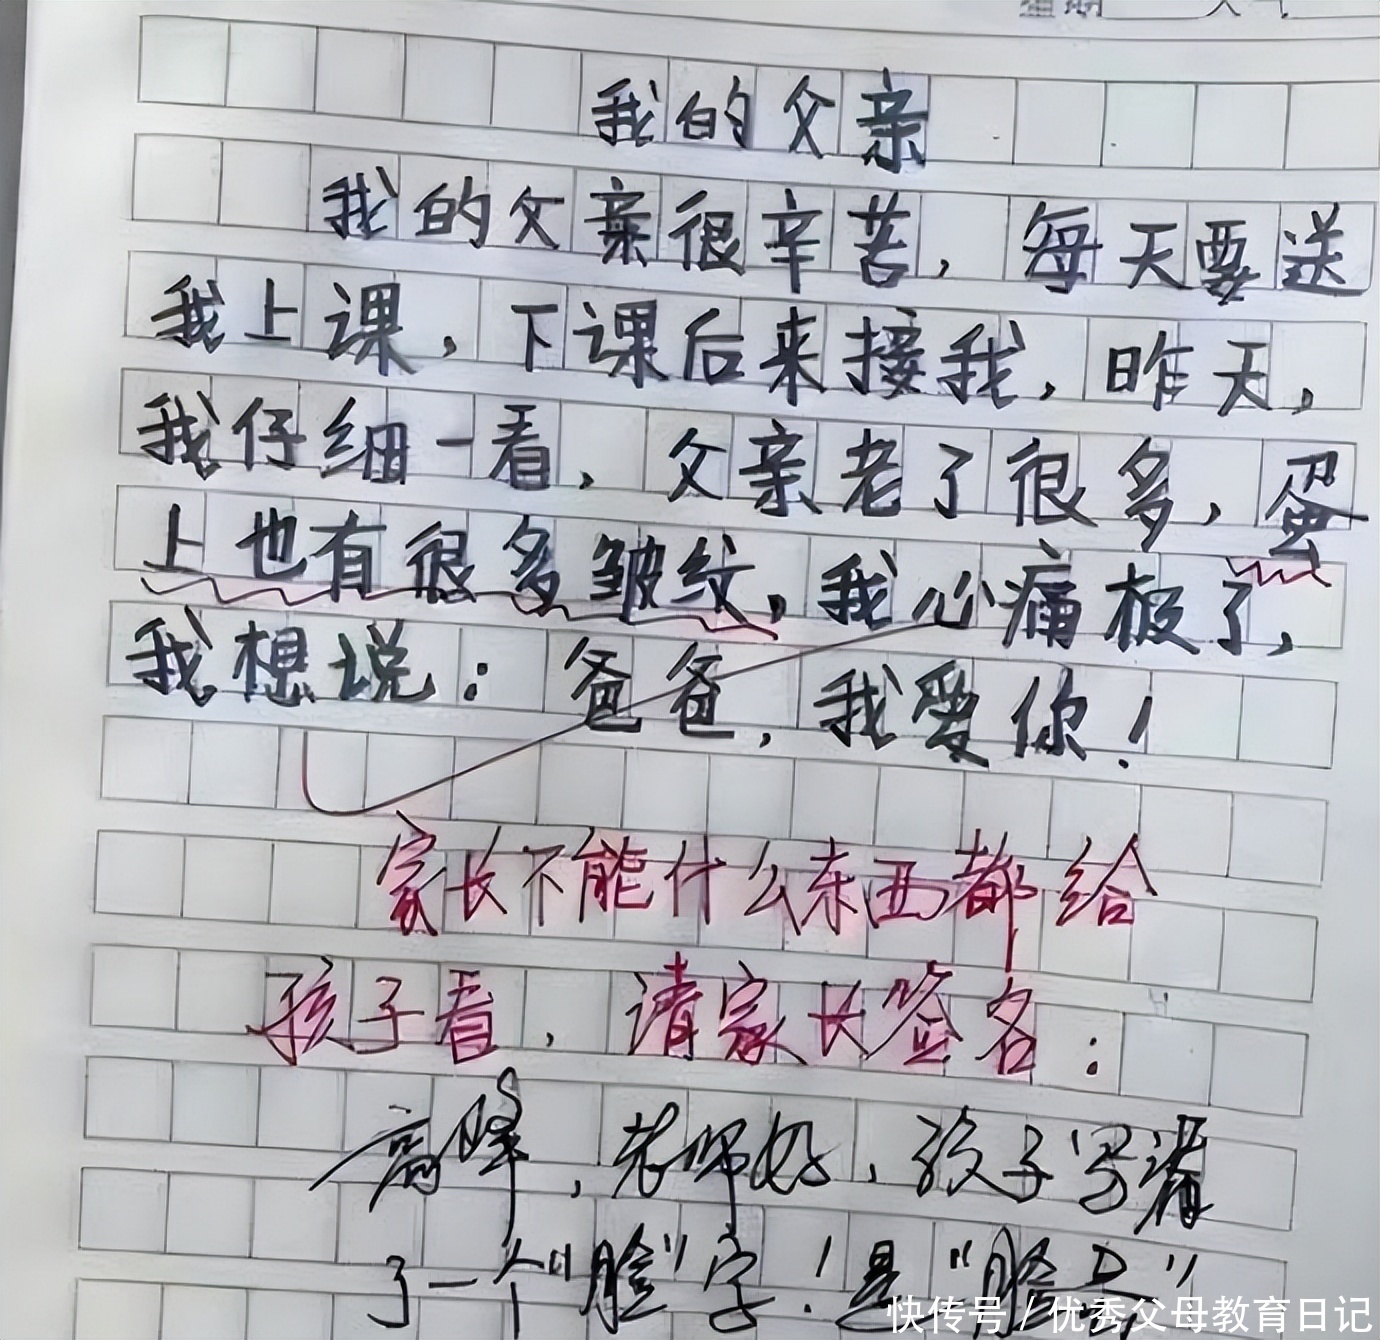 我的父亲
我的父亲很辛苦，每天要送
我上课，下课后来接我，昨天，
我仔细一看，父亲老了很多，蛋
上也有很多皱纹，我心痛极了，
我想说：爸爸，我爱你！
家长不能什么东西都给
孩子看，请家长签名：
高峰，老师好，孩子写错
了一个"脸"字！是"脸
快传号 / 优秀父母教育日记